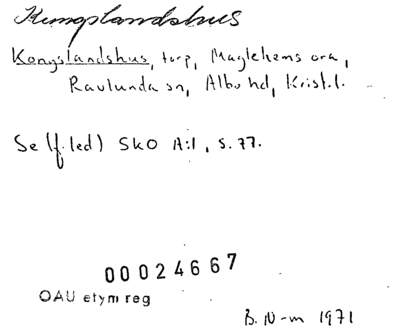 Kungslandshus
Kongslandshus, torp, Maglehems ora,
Ravlunda sn, Albo hd, Krist.l.
Se (f.led) SkO A:1, s.77.
00024667
OAU etym reg
B. N-m 1971